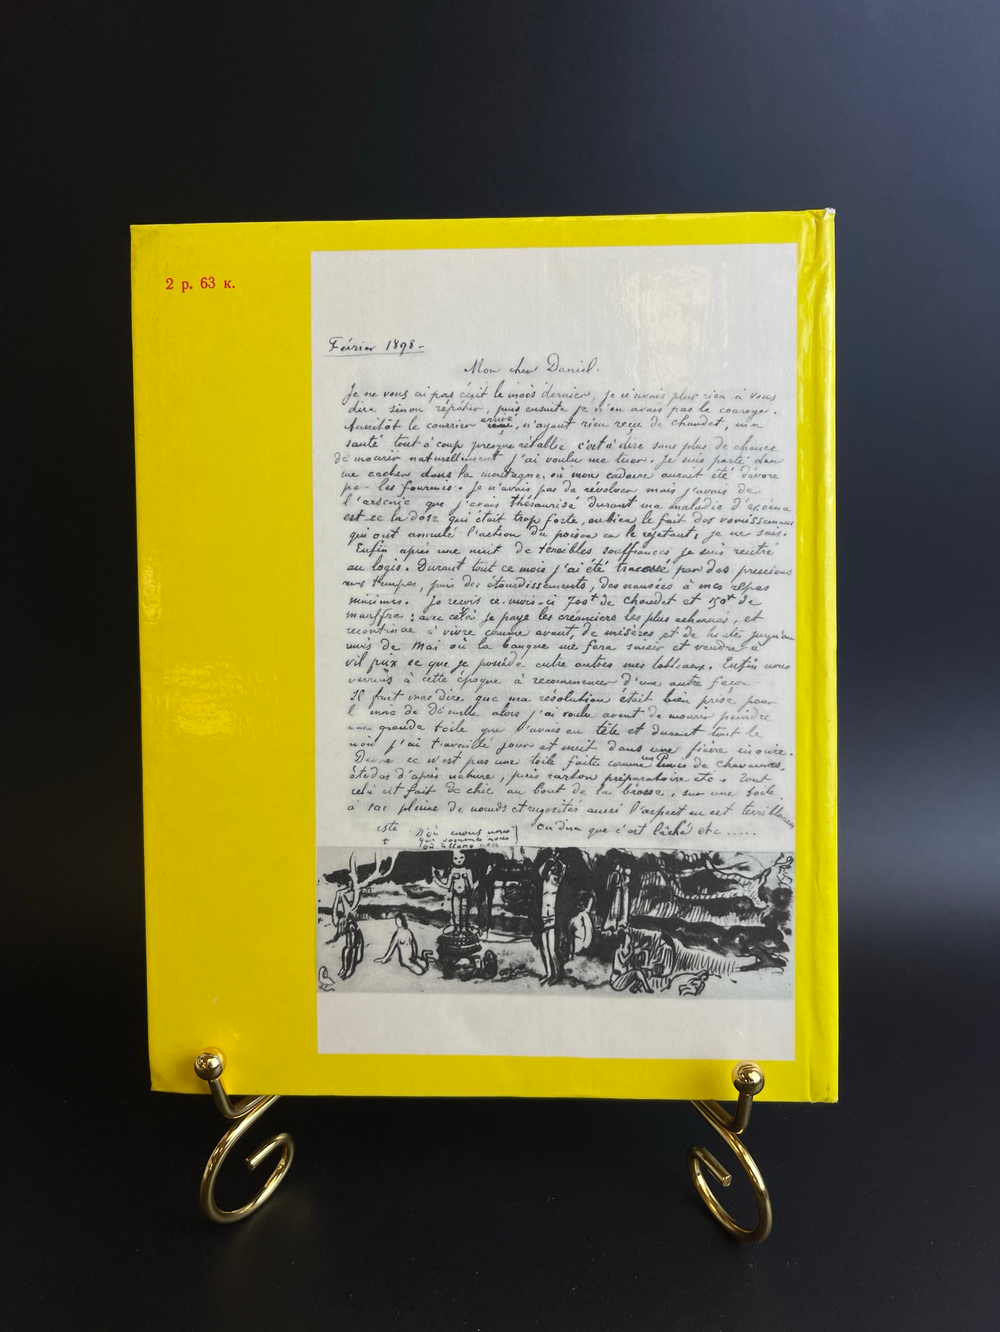 2 р. 63 к.
Février 1898 -
Mon cher Daniel.
Je ne vous ai pas écrit le mois dernier, je n'avais plus rien à vous
dire sinon répéter, puis ensuite je n'en avais pas le courage.
Aussitôt le courrier arrivé, n'ayant rien reçu de Chaudet, ma
santé tout à coup presque rétablie c'est à dire sans plus de chance
de mourir naturellement j'ai voulu me tuer. Je suis parti
me cacher dans la montagne, où mon cadavre aurait été dévoré
par les fourmis. Je n'avais pas de révolver mais j'avais de
l'arsenic que j'avais thésaurisé durant ma maladie d'eczéma
est-ce la dose qui était trop forte, ou bien le fait des vomissements
qui ont annulé l'action du poison en le rejetant, je ne sais.
Enfin après une nuit de terribles souffrances je suis rentré
au logis. Durant tout ce mois j'ai été tracassé par des pressions
aux tempes, puis des étourdissements, des nausées à mes repas
minimes. Je reçois ce mois-ci 700f de Chaudet et 150f de
: avec cela je paye les créanciers les plus acharnés, et
recontinue à vivre comme avant, de misères et de honte jusqu'au
mois de Mai où la banque me fera saisir et vendre à
vil prix ce que je possède entre autres mes tableaux. Enfin nous
verrons à cette époque à recommencer d'une autre façon.
Il faut vous dire que ma résolution était bien prise pour
le mois de Décembre alors j'ai voulu avant de mourir peindre
une grande toile que j'avais en tête et durant tout le
mois j'ai travaillé jour et nuit dans une fièvre inouïe.
Dame ce n'est pas une toile faite comme un Puvis de Chavannes,
études d'après nature, puis carton préparatoire etc. Tout
cela est fait de chic au bout de la brosse, sur une toile
à sac pleine de nœuds et rugosités aussi l'aspect en est terriblement
On dira que c'est lâché etc.....
D'où venons nous
que sommes nous
où allons nous